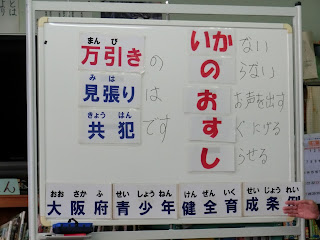 まん び
万引きの
み は
見張りは
きょう はん
共犯です
いかない
のらない
おお声を出す
すぐにげる
しらせる
おお さか ふ せい しょう ねん けん ぜん いく せい じょう れい
大阪府青少年健全育成条例
ん